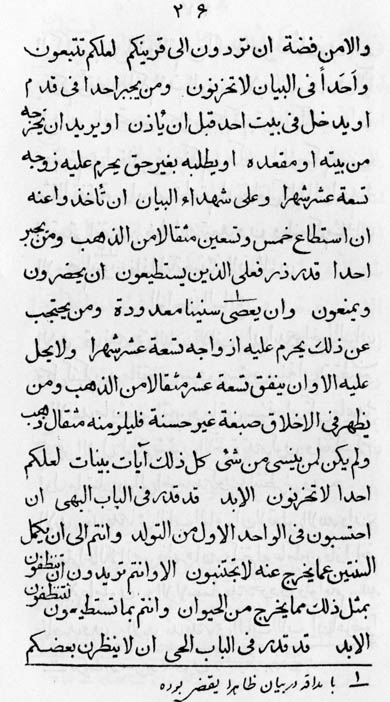 ٢٦
والا من فضة ان تردون الى قرينكم لعلكم تتبعون
واحداً فى البيان لا تحزنون ومن يجبر احدا فى قدم
او يدخل فى بيت احد قبل ان يأذن او يريد ان يخرجه
من بيته او مقعده او يطلبه بغير حق يحرم عليه زوجه
تسعة عشر شهرا وعلى شهداء البيان ان تأخذوا عنه
ان استطاع خمس وتسعين مثقالا من الذهب ومن يجبر
احدا قدر ذر فعلى الذين يستطيعون ان يحضرون
ويمنعون وان يعصى سنينا معدودة ومن يحتجب
عن ذلك يحرم عليه ازواجه تسعة عشر شهرا ولا يحل
عليه الا وان ينفق تسعة عشر مثقالا من الذهب ومن
يظهر فى الاخلاق صبغة غير حسنة فليلومنه مثقال ذهب
ولم يكن لمن ينسى من شئ كل ذلك آيات بينات لعلكم
احدا لا تحزنون الابد قد قدر فى الباب البهى ان
احسبون فى الواحد الاول من التولد وانتم الى ان يكمل
السنتين عما يخرج عنه لا تجتنبون الا وانتم تريدون ان تتنظفون
بمثل ذلك مما يخرج من الحيوان وانتم بما تستطيعون لتتنظفون
الابد قد قدر فى الباب الحى ان لا ينظرن بعضكم
١ با مداقه در بيان ظاهرا يقضى بوده